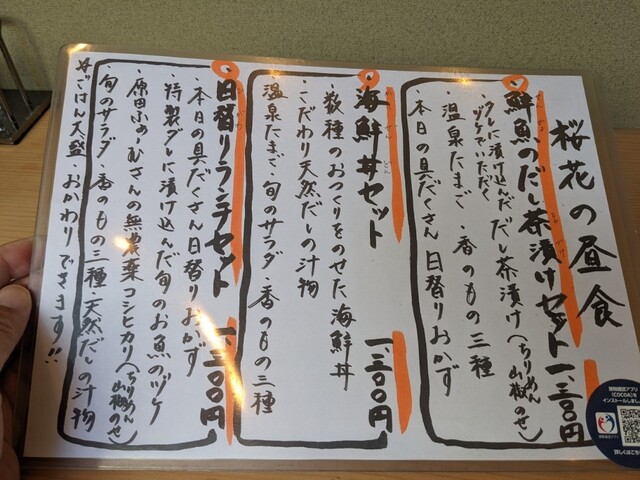 桜花の昼食
鮮魚のだし茶漬けセット 一、三〇〇円
タレに漬け込んだだし茶漬け(ちりめん山椒のせ)
ヅケでいただく
温泉たまご、香のもの三種
本日の具だくさん日替りおかず
海鮮丼セット 一、三〇〇円
数種のおつくりをのせた海鮮丼
こだわり天然だしの汁物
温泉たまご・旬のサラダ・香のもの三種
日替りランチセット 一、三〇〇円
本日の具だくさん日替りおかず
特製ダレに漬け込んだ旬のお魚のヅケ
原田ふぁーむさんの無農薬コシヒカリ(ちりめん山椒のせ)
旬のサラダ・香のもの三種・天然だしの汁物
※ごはん大盛 おかわりできます!!
接触確認アプリ
(COCOA)を
インストールしまし
詳しくはこち